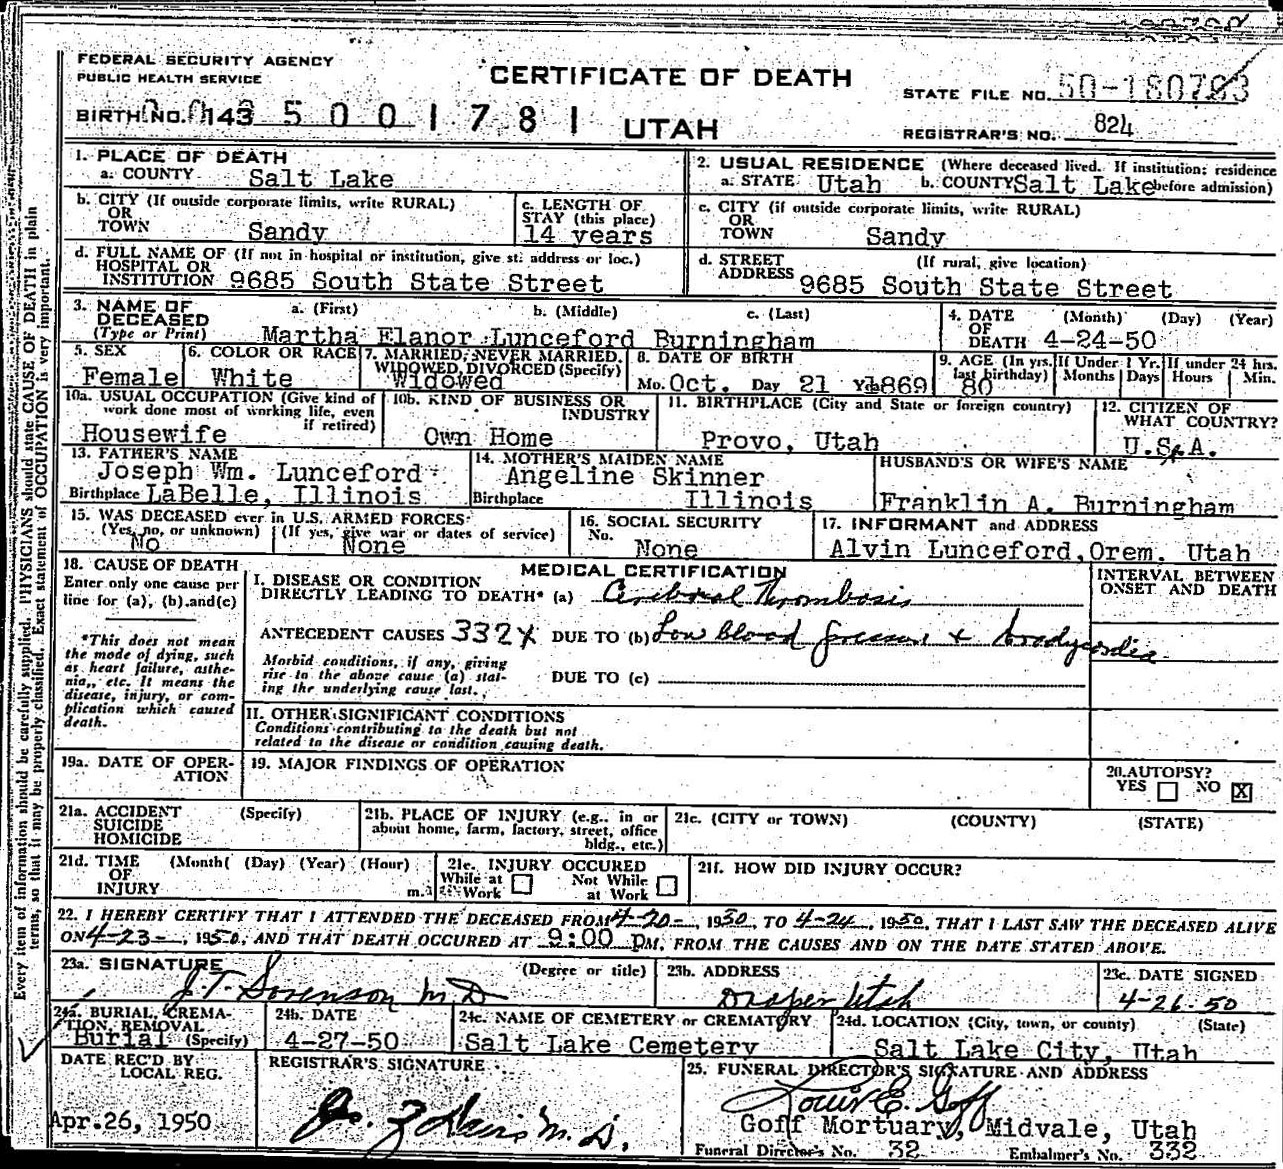 FEDERAL SECURITY AGENCY
PUBLIC HEALTH SERVICE
CERTIFICATE OF DEATH
STATE FILE NO. 50-180793
BIRTH NO. 143 5 0 0 1 7 8 1 UTAH
REGISTRAR'S NO. 824
1. PLACE OF DEATH
a. COUNTY Salt Lake
2. USUAL RESIDENCE (Where deceased lived. If institution; residence
a. STATE Utah b. COUNTY Salt Lake before admission)
b. CITY (If outside corporate limits, write RURAL)
OR
TOWN Sandy
c. LENGTH OF
STAY (this place)
14 years
c. CITY (if outside corporate limits, write RURAL)
OR
TOWN Sandy
d. FULL NAME OF (If not in hospital or institution, give st. address or loc.)
HOSPITAL OR
INSTITUTION 9685 South State Street
d. STREET (If rural, give location)
ADDRESS 9685 South State Street
3. NAME OF a. (First) b. (Middle) c. (Last)
DECEASED
(Type or Print) Martha Elanor Lunceford Burningham
4. DATE (Month) (Day) (Year)
OF
DEATH 4-24-50
5. SEX
Female
6. COLOR OR RACE
White
7. MARRIED, NEVER MARRIED,
WIDOWED, DIVORCED (Specify)
Widowed
8. DATE OF BIRTH
Mo. Oct. Day 21 Yr. 1869
9. AGE (In yrs. If Under 1 Yr. If under 24 hrs.
last birthday) Months Days Hours Min.
80
10a. USUAL OCCUPATION (Give kind of
work done most of working life, even
if retired)
Housewife
10b. KIND OF BUSINESS OR
INDUSTRY
Own Home
11. BIRTHPLACE (City and State or foreign country)
Provo, Utah
12. CITIZEN OF
WHAT COUNTRY?
U.S.A.
13. FATHER'S NAME
Joseph Wm. Lunceford
Birthplace LaBelle, Illinois
14. MOTHER'S MAIDEN NAME
Angeline Skinner
Birthplace Illinois
HUSBAND'S OR WIFE'S NAME
Franklin A. Burningham
15. WAS DECEASED ever in U.S. ARMED FORCES
(Yes, no, or unknown) (If yes, give war or dates of service)
No None
16. SOCIAL SECURITY
No. None
17. INFORMANT and ADDRESS
Alvin Lunceford, Orem, Utah
18. CAUSE OF DEATH
Enter only one cause per
line for (a), (b), and (c)
*This does not mean
the mode of dying, such
as heart failure, asthe-
nia, etc. It means the
disease, injury, or com-
plication which caused
death.
MEDICAL CERTIFICATION
I. DISEASE OR CONDITION
DIRECTLY LEADING TO DEATH* (a) Cerebral Thrombosis
ANTECEDENT CAUSES 332X DUE TO (b) Low blood pressure & bradycardia
Morbid conditions, if any, giving
rise to the above cause (a) stat-
ing the underlying cause last.
DUE TO (c)
INTERVAL BETWEEN
ONSET AND DEATH
II. OTHER SIGNIFICANT CONDITIONS
Conditions contributing to the death but not
related to the disease or condition causing death.
19a. DATE OF OPER-
ATION
19. MAJOR FINDINGS OF OPERATION
20. AUTOPSY?
YES NO X
21a. ACCIDENT (Specify)
SUICIDE
HOMICIDE
21b. PLACE OF INJURY (e.g., in or
about home, farm, factory, street, office
bldg., etc.)
21c. (CITY or TOWN) (COUNTY) (STATE)
21d. TIME (Month) (Day) (Year) (Hour)
OF
INJURY m.
21e. INJURY OCCURED
While at Not While
Work at Work
21f. HOW DID INJURY OCCUR?
22. I HEREBY CERTIFY THAT I ATTENDED THE DECEASED FROM 4-20-, 1950, TO 4-24, 1950, THAT I LAST SAW THE DECEASED ALIVE
ON 4-23-, 1950, AND THAT DEATH OCCURED AT 9:00 pM, FROM THE CAUSES AND ON THE DATE STATED ABOVE.
23a. SIGNATURE (Degree or title)
J.T. Sorenson M D
23b. ADDRESS
Draper Utah
23c. DATE SIGNED
4-26-50
24a. BURIAL, CREMA-
TION, REMOVAL
Burial (Specify)
24b. DATE
4-27-50
24c. NAME OF CEMETERY or CREMATORY
Salt Lake Cemetery
24d. LOCATION (City, town, or county) (State)
Salt Lake City, Utah
DATE REC'D BY
LOCAL REG.
Apr.26, 1950
REGISTRAR'S SIGNATURE
M.D.
25. FUNERAL DIRECTOR'S SIGNATURE AND ADDRESS
Louis E. Goff
Goff Mortuary, Midvale, Utah
Funeral Director's No. 32 Embalmer's No. 332
Every item of information should be carefully supplied. PHYSICIANS should state CAUSE OF DEATH in plain
terms, so that it may be properly classified. Exact statement of OCCUPATION is very important.